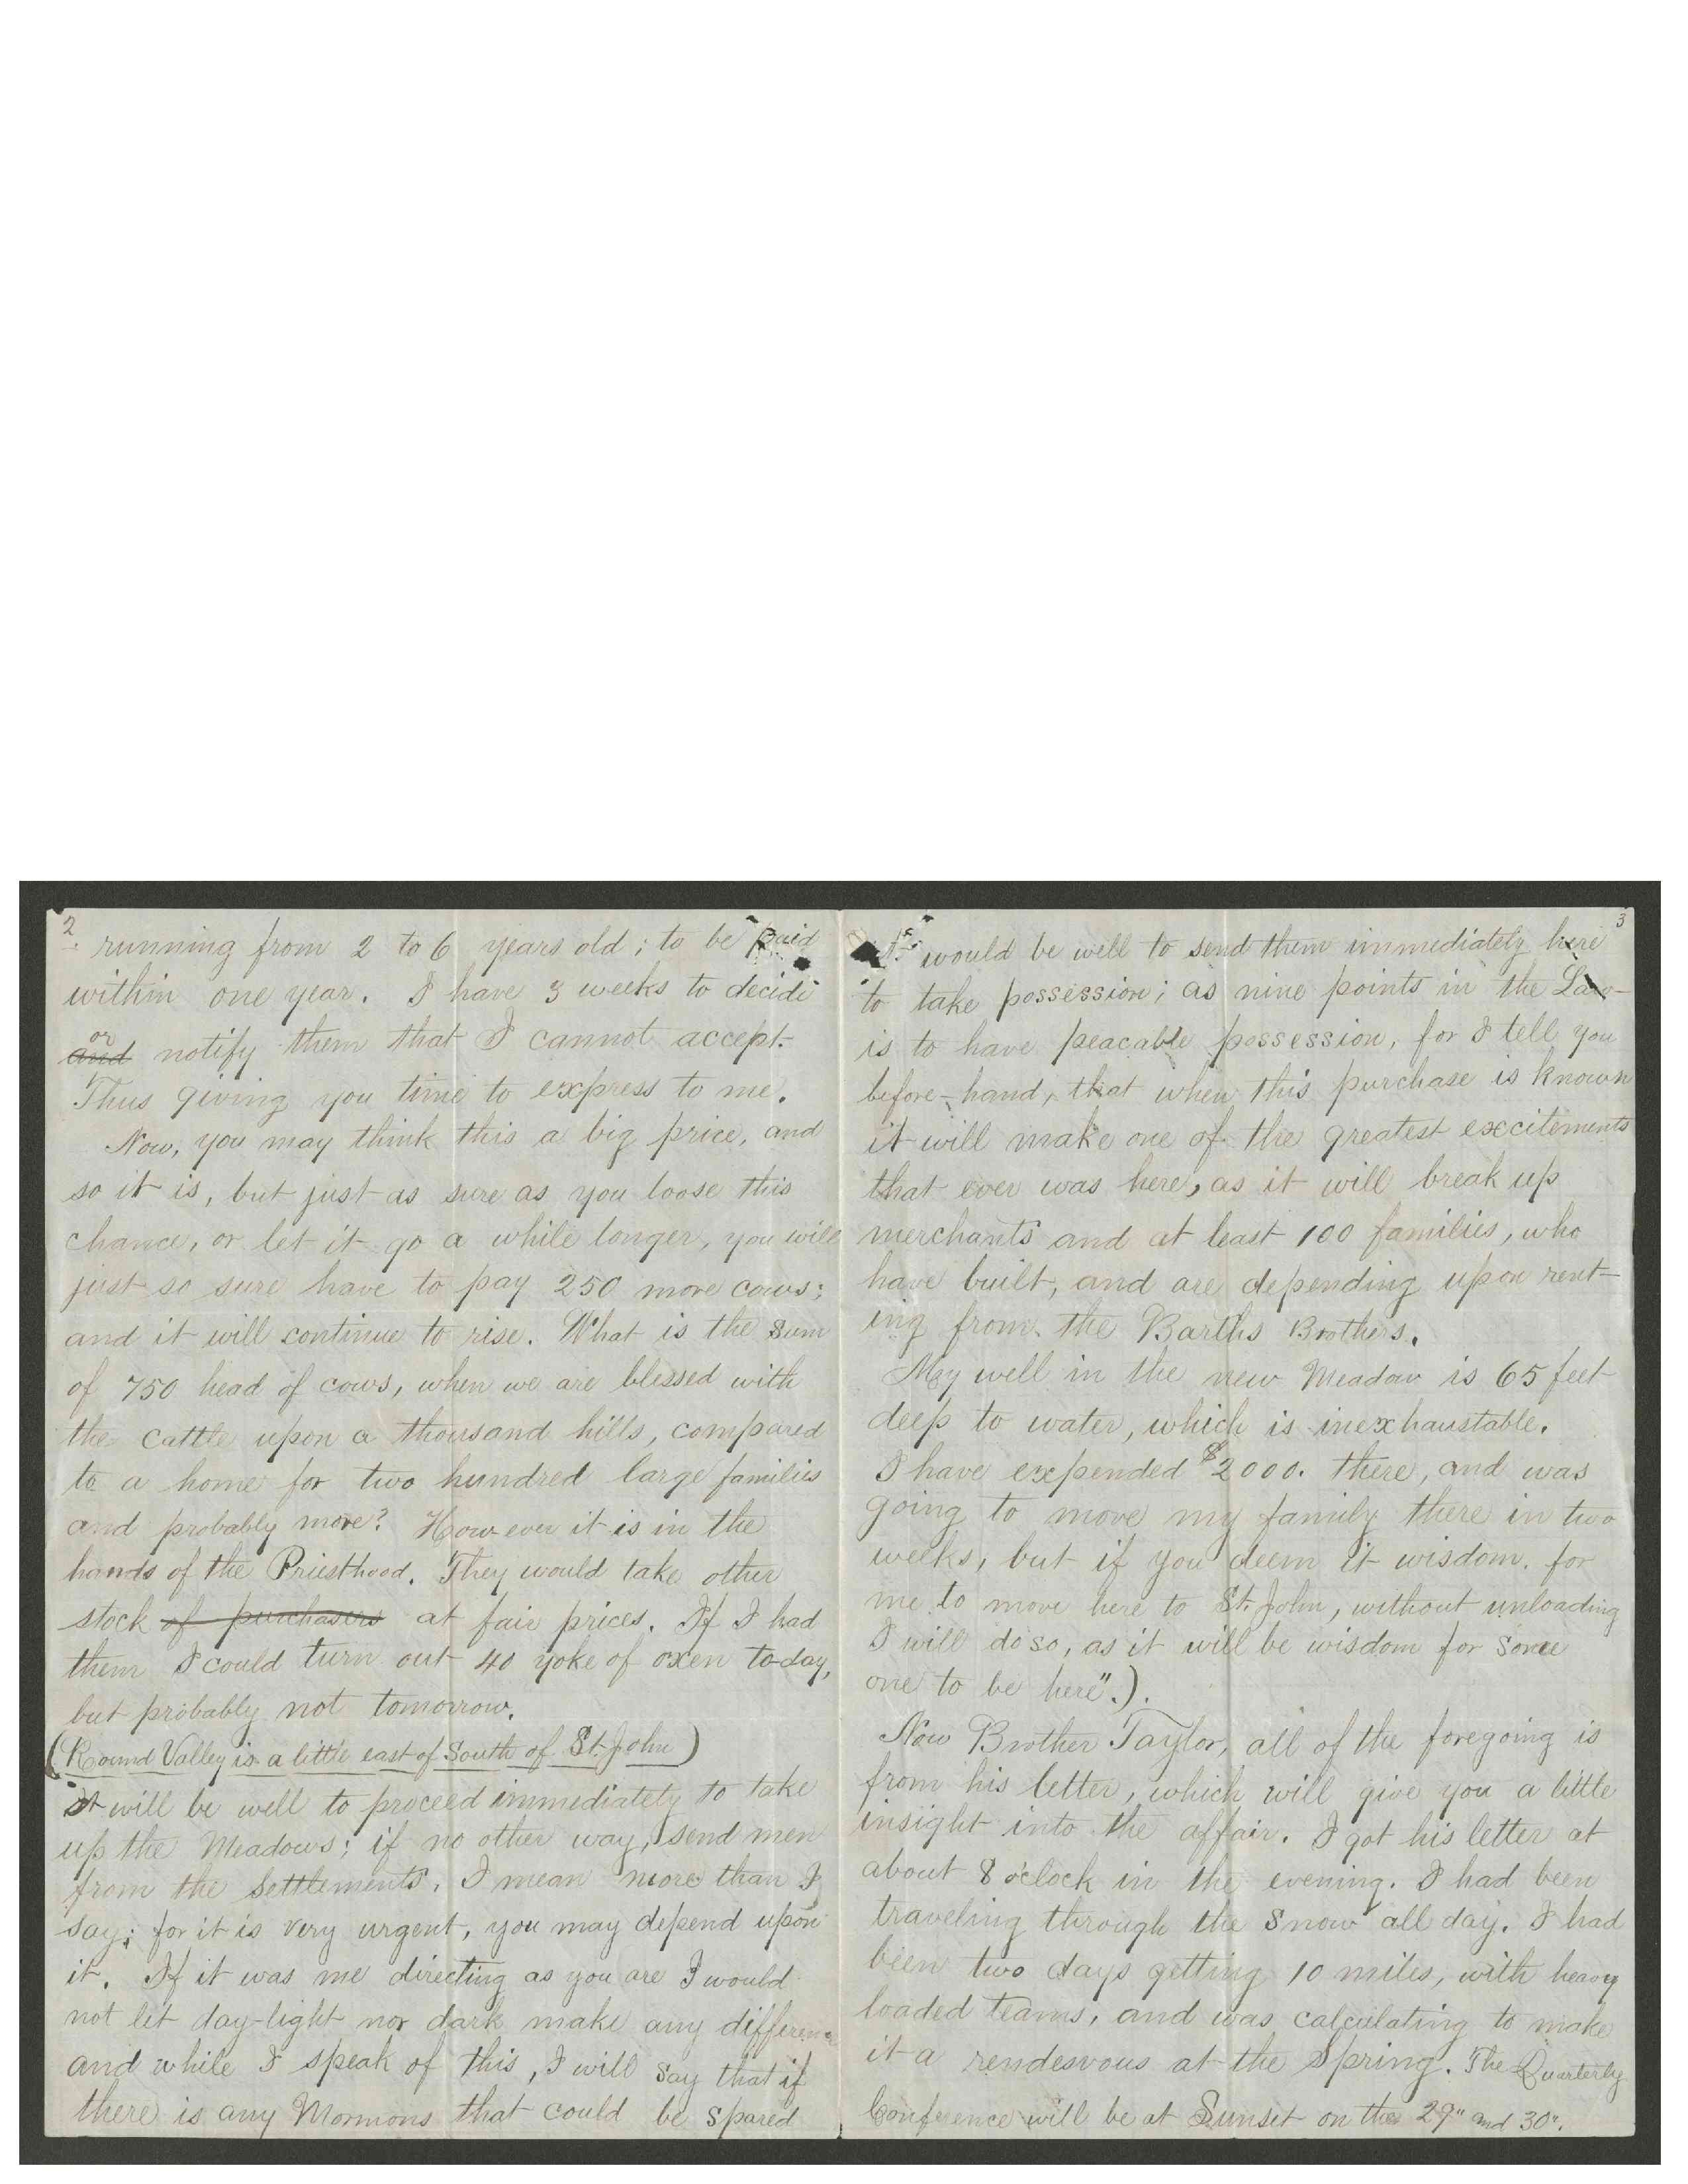 2.
running from 2 to 6 years old; to be paid
within one year. I have 3 weeks to decide
or
and notify them that I cannot accept.
Thus giving you time to express to me.
Now, you may think this a big price, and
so it is, but just as sure as you loose this
chance, or let it go a while longer, you will
just so sure have to pay 250 more cows;
and it will continue to rise. What is the sum
of 750 head of cows, when we are blessed with
the cattle upon a thousand hills, compared
to a home for two hundred large families
and probably more? However it is in the
hands of the Priesthood. They would take other
stock of purchasers at fair prices. If I had
them I could turn out 40 yoke of oxen to-day,
but probably not tomorrow.
(Round Valley is a little east of South of St. John)
it will be well to proceed immediately to take
up the Meadows; if no other way, send men
from the settlements. I mean more than I
say; for it is very urgent, you may depend upon
it. If it was me directing as you are I would
not let day-light nor dark make any differenc
and while I speak of this, I will say that if
there is any Mormons that could be spared
3
It would be well to send them immediately here
to take possession; as nine points in the Law
is to have peacable possession, for I tell you
before-hand, that when this purchase is known
it will make one of the greatest excitements
that ever was here, as it will break up
merchants and at least 100 families, who
have built, and are depending upon rent-
ing from the Barths Brothers.
May well in the new Meadow is 65 feet
deep to water, which is inexhaustable.
I have expended $2000. there, and was
going to move my family there in two
weeks, but if you deem it wisdom for
me to move here to St. John, without unloading
I will do so, as it will be wisdom for some
one to be here".).
Now Brother Taylor, all of the foregoing is
from his letter, which will give you a little
insight into the affair. I got his letter at
about 8 o'clock in the evening. I had been
traveling through the snow all day. I had
been two days getting 10 miles, with heavy
loaded teams, and was calculating to make
it a rendesvous at the Spring. The Quarterly
Conference will be at Sunset on the 29" and 30".